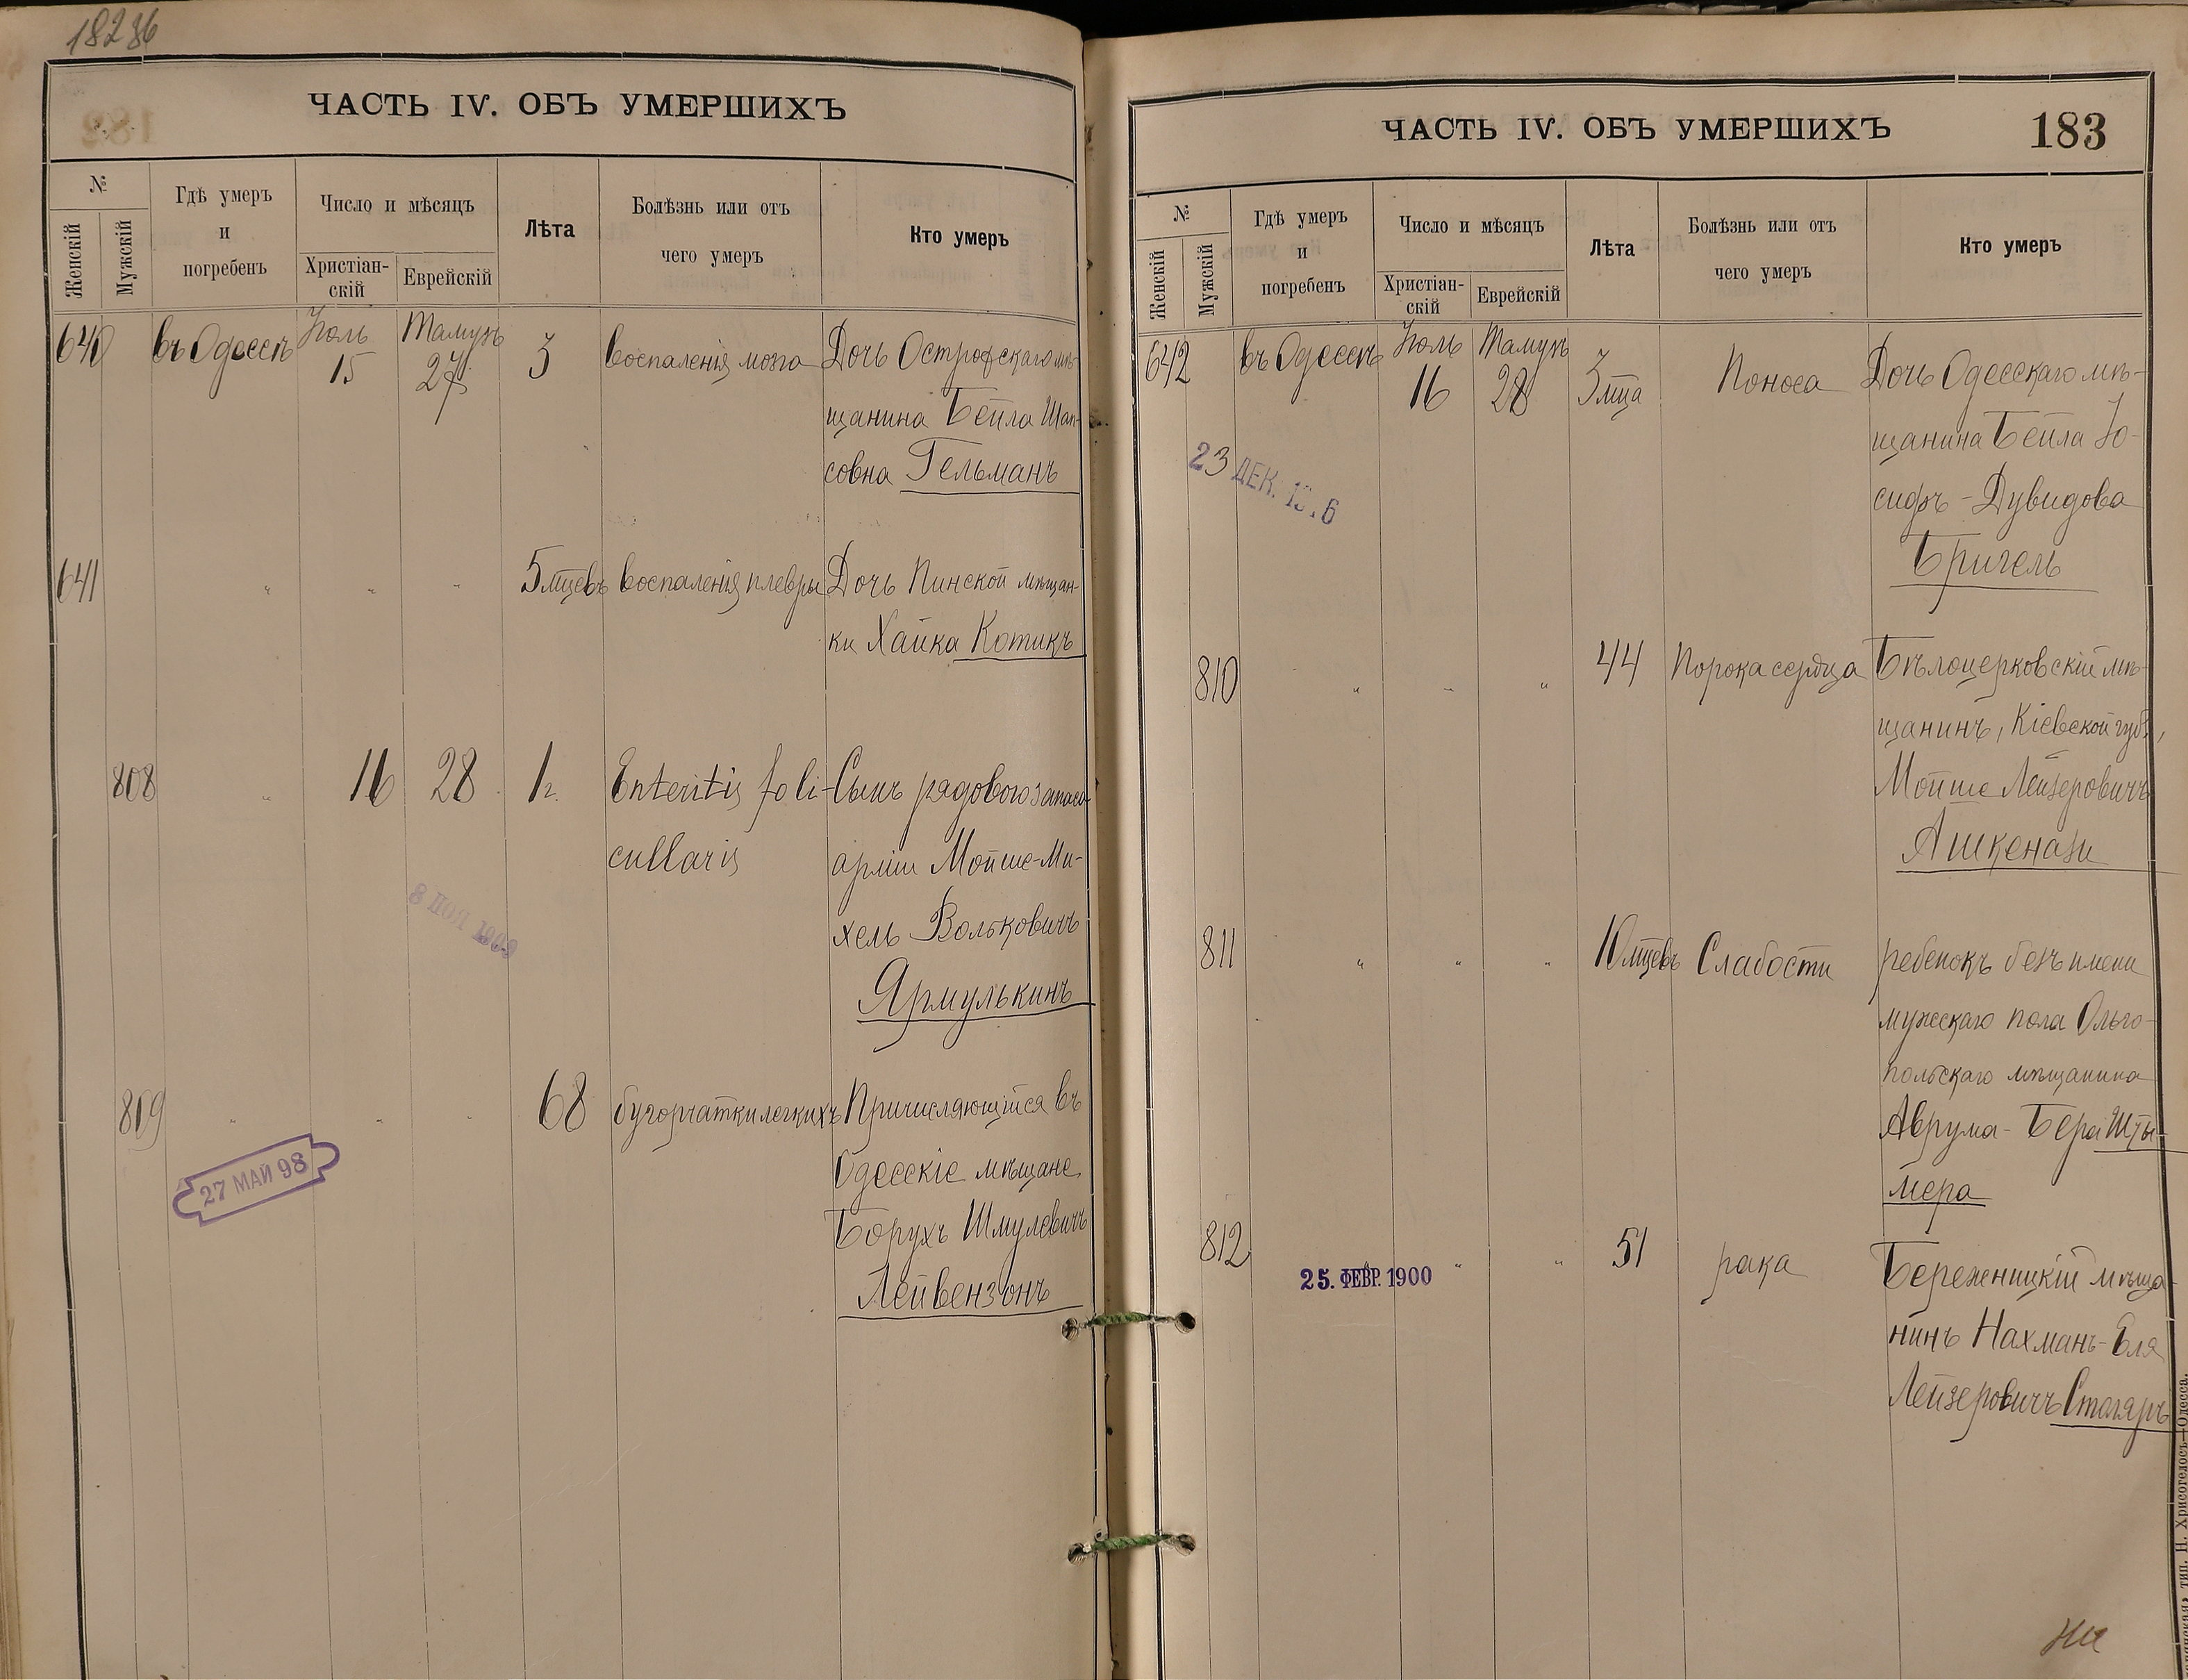 18236
ЧАСТЬ IV. ОБЪ УМЕРШИХЪ
№
Женскій
Мужскій
Гдѣ умеръ
и
погребенъ
Число и мѣсяцъ
Христіан-
скій
Еврейскій
Лѣта
Болѣзнь или отъ
чего умеръ
Кто умеръ
640 въ Одессѣ Іюль 15 Тамузъ 27 3 воспаленія мозга Дочь Острофскаго мѣ-
щанина Бейла Шап-
совна Гельманъ
641 " " " 5 мцевъ воспаленія плевры Дочь Пинской мѣщан-
ки Хайка Котикъ
808 " 16 28 1 г. Enteritis foli- Сынъ рядового запаса
cullaris арміи Мойше-Ми-
хель Вольковичъ
8 НОЯ 1909
Ярмулькинъ
809 " " " 68 бугорчатки легкихъ Причисляющійся въ
27 МАЙ 98
Одесскіе мѣщане
Борухъ Шмулевичъ
Лейвензонъ
ЧАСТЬ IV. ОБЪ УМЕРШИХЪ
183
№
Женскій
Мужскій
Гдѣ умеръ
и
погребенъ
Число и мѣсяцъ
Христіан-
скій
Еврейскій
Лѣта
Болѣзнь или отъ
чего умеръ
Кто умеръ
642 въ Одессѣ Іюль 16 Тамузъ 28 3 мца Поноса Дочь Одесскаго мѣ-
щанина Бейла Іо-
23 ДЕК.
сифъ-Дувидова
Бригель
810 " " " 44 Порока сердца Бѣлоцерковскій мѣ-
щанинъ, Кіевской губ.,
Мойше Лейзеровичъ
Ашкенази
811 " " " 10 мцевъ Слабости ребенокъ безъ имени
мужескаго пола Ольго-
польскаго мѣщанина
Аврума-Бера Шты-
мера
812 " " " 51 рака Бережницкій мѣща-
25. ФЕВР. 1900
нинъ Нахманъ-Еля
Лейзеровичъ Столяръ
тип. И. Хрисогелосъ—Одесса.